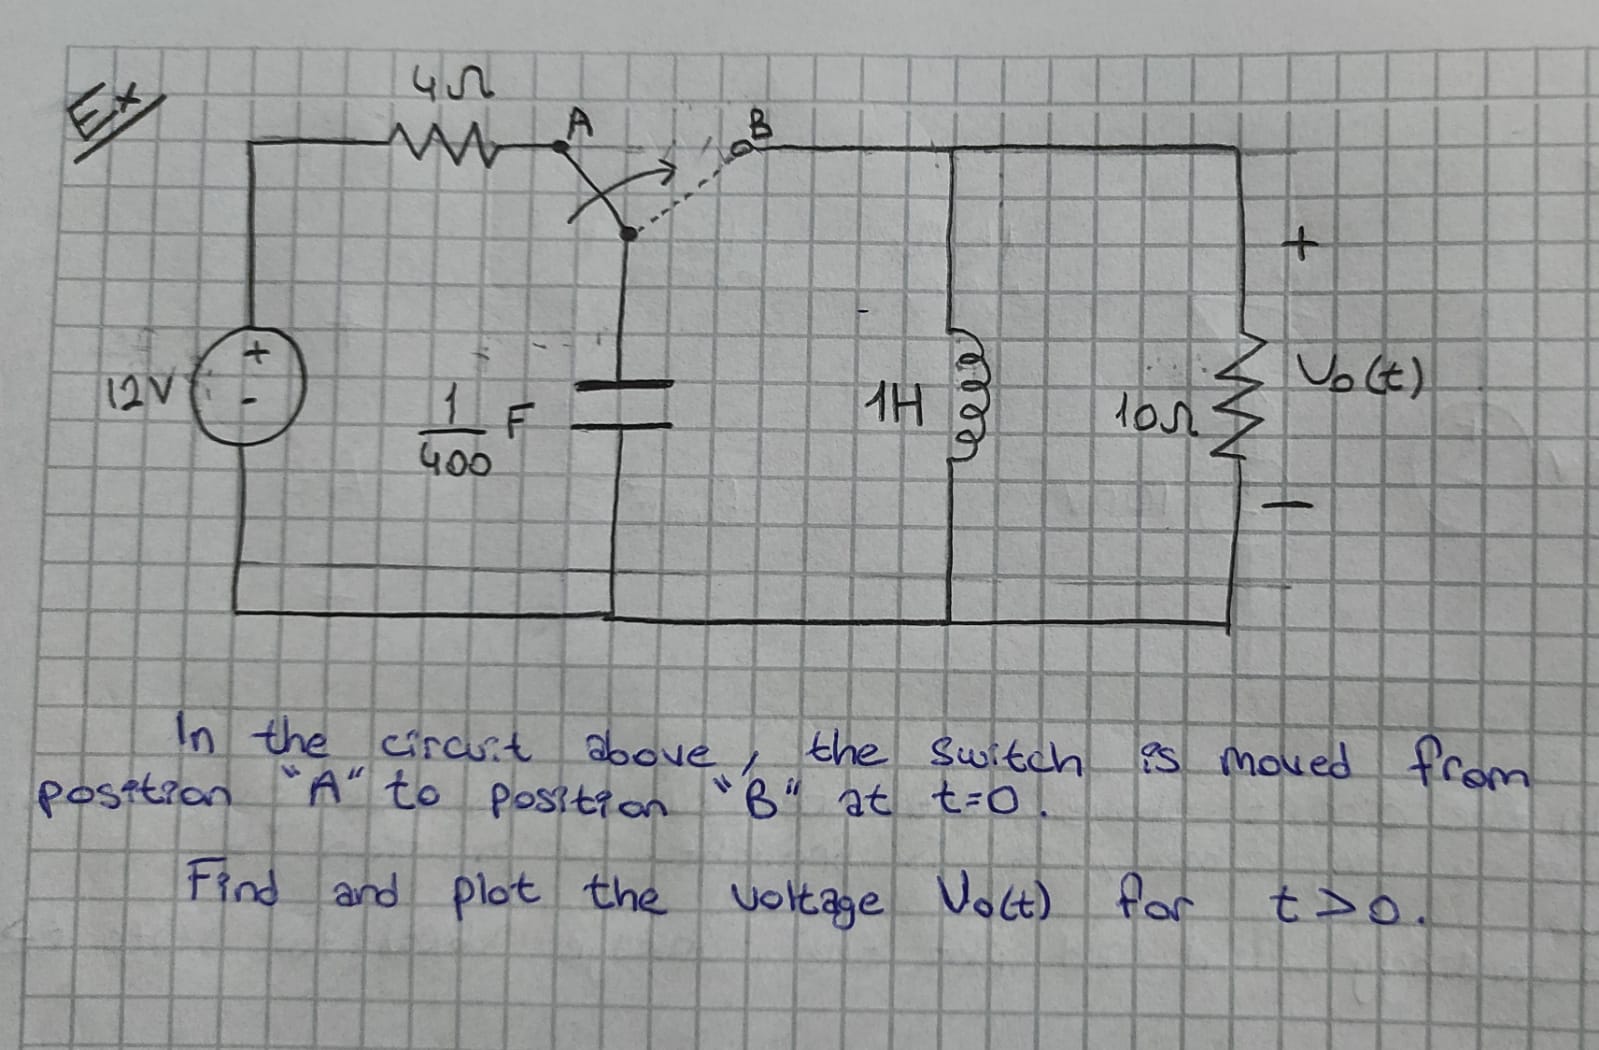 Ex
4Ω
A
B
+
12V
+
-
1/400 F
1H
10Ω
Vo(t)
-
In the circuit above, the switch is moved from
position "A" to position "B" at t=0.
Find and plot the voltage Vo(t) for t>0.